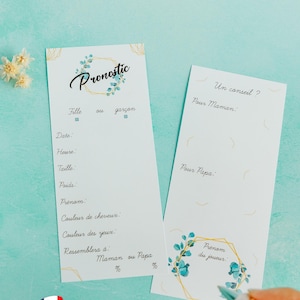 Pronostic
Fille ou garçon
Date:
Heure:
Taille:
Poids:
Prénom:
Couleur de cheveux:
Couleur des yeux:
Ressemblera à:
Maman ou Papa
Un conseil ?
Pour Maman:
Pour Papa:
Prénom
du joueur